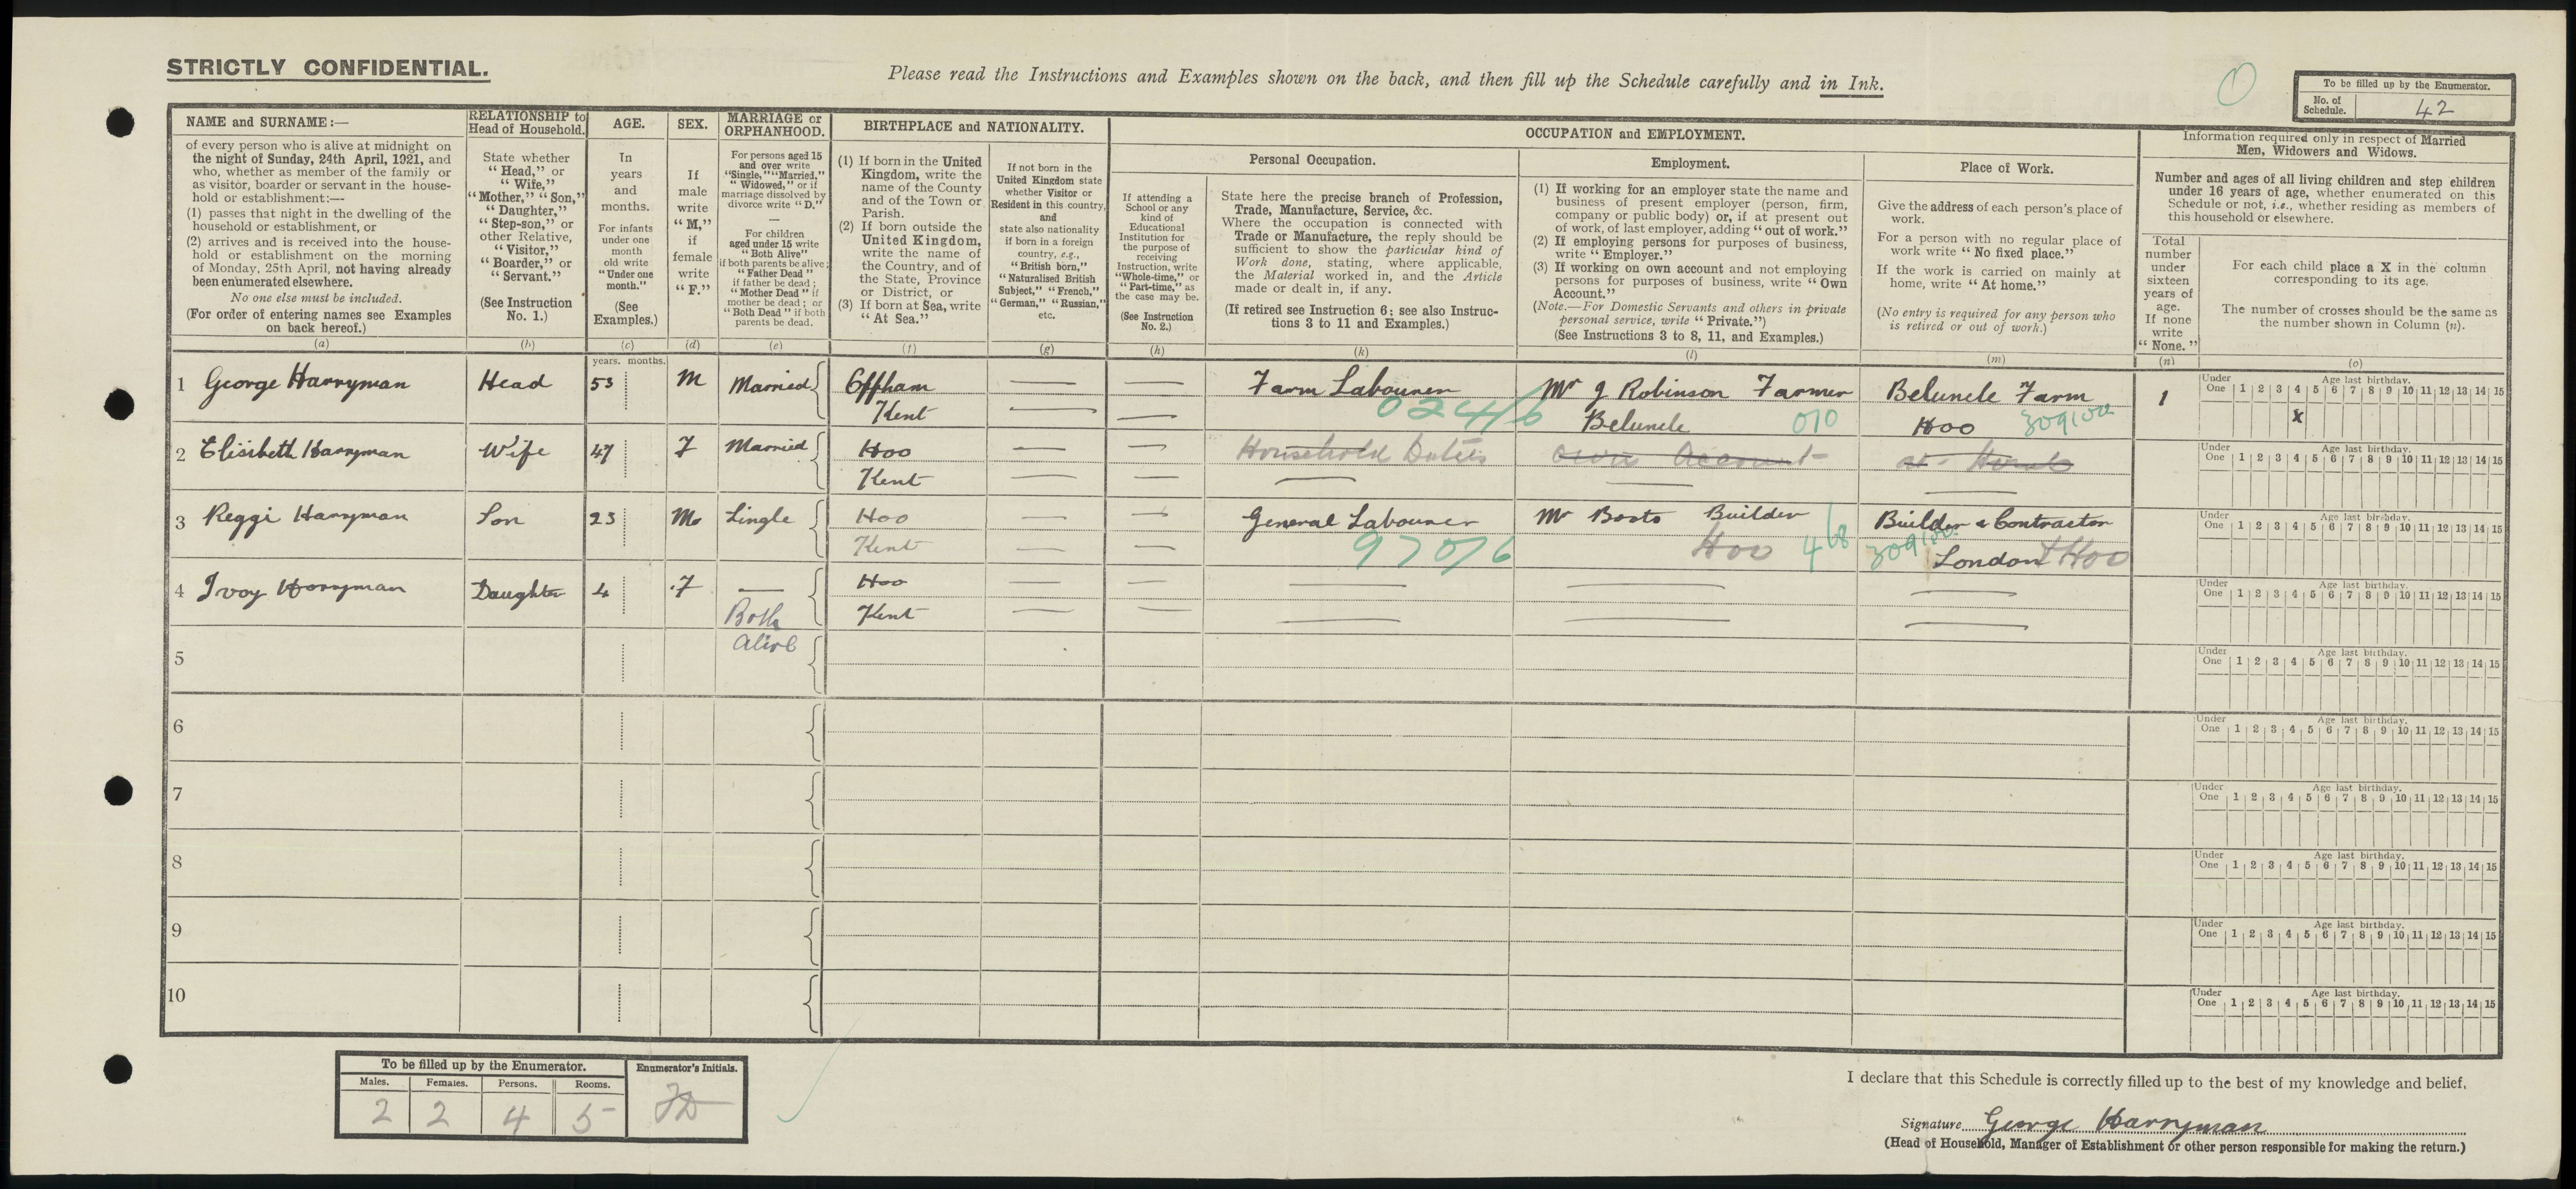 STRICTLY CONFIDENTIAL.
Please read the Instructions and Examples shown on the back, and then fill up the Schedule carefully and in Ink.
To be filled up by the Enumerator.
No. of Schedule. 42
NAME and SURNAME:—
of every person who is alive at midnight on
the night of Sunday, 24th April, 1921, and
who, whether as member of the family or
as visitor, boarder or servant in the house-
hold or establishment:—
(1) passes that night in the dwelling of the
household or establishment, or
(2) arrives and is received into the house-
hold or establishment on the morning
of Monday, 25th April, not having already
been enumerated elsewhere.
No one else must be included.
(For order of entering names see Examples
on back hereof.)
(a)
RELATIONSHIP to
Head of Household.
State whether
"Head," or
"Wife,"
"Mother," "Son,"
"Daughter,"
"Step-son," or
other Relative,
"Visitor,"
"Boarder," or
"Servant."
(See Instruction
No. 1.)
(b)
AGE.
In
years
and
months.
For infants
under one
month
old write
"Under one
month."
(See
Examples.)
(c)
SEX.
If
male
write
"M,"
if
female
write
"F."
(d)
MARRIAGE or
ORPHANHOOD.
For persons aged 15
and over write
"Single," "Married,"
"Widowed," or if
marriage dissolved by
divorce write "D."
—
For children
aged under 15 write
"Both Alive"
if both parents be alive;
"Father Dead"
if father be dead;
"Mother Dead" if
mother be dead; or
"Both Dead" if both
parents be dead.
(e)
BIRTHPLACE and NATIONALITY.
(1) If born in the United
Kingdom, write the
name of the County
and of the Town or
Parish.
(2) If born outside the
United Kingdom,
write the name of
the Country, and of
the State, Province
or District, or
(3) If born at Sea, write
"At Sea."
(f)
If not born in the
United Kingdom state
whether Visitor or
Resident in this country,
and
state also nationality
if born in a foreign
country, e.g.,
"British born,"
"Naturalised British
Subject," "French,"
"German," "Russian,"
etc.
(g)
OCCUPATION and EMPLOYMENT.
If attending a
School or any
kind of
Educational
Institution for
the purpose of
receiving
Instruction, write
"Whole-time," or
"Part-time," as
the case may be.
(See Instruction
No. 2.)
(h)
Personal Occupation.
State here the precise branch of Profession,
Trade, Manufacture, Service, &c.
Where the occupation is connected with
Trade or Manufacture, the reply should be
sufficient to show the particular kind of
Work done, stating, where applicable,
the Material worked in, and the Article
made or dealt in, if any.
(If retired see Instruction 6; see also Instruc-
tions 3 to 11 and Examples.)
(k)
Employment.
(1) If working for an employer state the name and
business of present employer (person, firm,
company or public body) or, if at present out
of work, of last employer, adding "out of work."
(2) If employing persons for purposes of business,
write "Employer."
(3) If working on own account and not employing
persons for purposes of business, write "Own
Account."
(Note.—For Domestic Servants and others in private
personal service, write "Private.")
(See Instructions 3 to 8, 11, and Examples.)
(l)
Place of Work.
Give the address of each person's place of
work.
For a person with no regular place of
work write "No fixed place."
If the work is carried on mainly at
home, write "At home."
(No entry is required for any person who
is retired or out of work.)
(m)
Information required only in respect of Married
Men, Widowers and Widows.
Number and ages of all living children and step children
under 16 years of age, whether enumerated on this
Schedule or not, i.e., whether residing as members of
this household or elsewhere.
Total
number
under
sixteen
years of
age.
If none
write
"None."
(n)
For each child place a X in the column
corresponding to its age.
The number of crosses should be the same as
the number shown in Column (n).
(o)
years. months.
1 George Harryman Head 53 M Married Offham — — Farm Labourer Mr J Robinson Farmer Beluncle Farm 1
Under One 1 2 3 4 5 6 7 8 9 10 11 12 13 14 15
Age last birthday.
Kent — — 024/6 Beluncle 010 Hoo 309/00 x
2 Elisibeth Harryman Wife 47 F Married Hoo — — Household Duties own Account at Home
Under One 1 2 3 4 5 6 7 8 9 10 11 12 13 14 15
Age last birthday.
Kent — — — — —
3 Reggi Harryman Son 23 M Single Hoo — — General Labourer Mr Basts Builder Builder & Contractor
Under One 1 2 3 4 5 6 7 8 9 10 11 12 13 14 15
Age last birthday.
Kent — — 970/6 Hoo 468 London & Hoo
4 Ivoy Harryman Daughter 4 F — Hoo — — — — —
Under One 1 2 3 4 5 6 7 8 9 10 11 12 13 14 15
Age last birthday.
Both Kent — — — — —
Alive
5
Under One 1 2 3 4 5 6 7 8 9 10 11 12 13 14 15
Age last birthday.
6
Under One 1 2 3 4 5 6 7 8 9 10 11 12 13 14 15
Age last birthday.
7
Under One 1 2 3 4 5 6 7 8 9 10 11 12 13 14 15
Age last birthday.
8
Under One 1 2 3 4 5 6 7 8 9 10 11 12 13 14 15
Age last birthday.
9
Under One 1 2 3 4 5 6 7 8 9 10 11 12 13 14 15
Age last birthday.
10
Under One 1 2 3 4 5 6 7 8 9 10 11 12 13 14 15
Age last birthday.
To be filled up by the Enumerator.
Males. Females. Persons. Rooms.
2 2 4 5
Enumerator's Initials.
I declare that this Schedule is correctly filled up to the best of my knowledge and belief,
Signature George Harryman
(Head of Household, Manager of Establishment or other person responsible for making the return.)